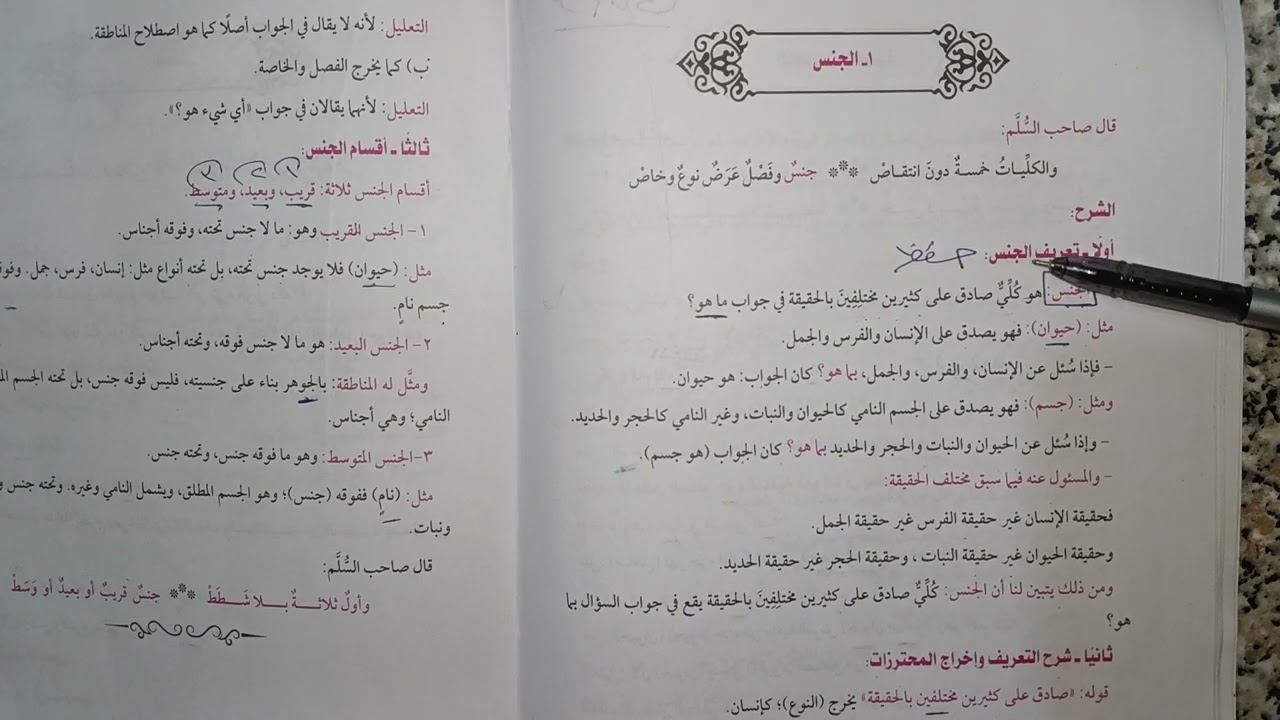 ١ـ الجنس
قال صاحب السُّلَّم:
والكلِّيـاتُ خمسـةٌ دونَ انتقـاصْ *** جنسٌ وفَصْلٌ عَرَضٌ نوعٌ وخاصْ
الشرح:
أولًا ـ تعريف الجنس:
الجنس: هو كُلِّيٌّ صادق على كثيرين مختلِفِينَ بالحقيقة في جواب ما هو؟
مثل: (حيوان): فهو يصدق على الإنسان والفرس والجمل.
- فإذا سُئل عن الإنسان، والفرس، والجمل، بما هو؟ كان الجواب: هو حيوان.
ومثل: (جسم): فهو يصدق على الجسم النامي كالحيوان والنبات، وغير النامي كالحجر والحديد.
- وإذا سُئل عن الحيوان والنبات والحجر والحديد بما هو؟ كان الجواب (هو جسم).
- والمسئول عنه فيما سبق مختلف الحقيقة:
فحقيقة الإنسان غير حقيقة الفرس غير حقيقة الجمل.
وحقيقة الحيوان غير حقيقة النبات ، وحقيقة الحجر غير حقيقة الحديد.
ومن ذلك يتبين لنا أن الجنس: كُلِّيٌّ صادق على كثيرين مختلِفِينَ بالحقيقة يقع في جواب السؤال بما
هو؟
ثانيًا ـ شرح التعريف وإخراج المحترزات:
قوله: «صادق على كثيرين مختلفين بالحقيقة» يخرج (النوع)؛ كإنسان.
التعليل: لأنه لا يقال في الجواب أصلًا كما هو اصطلاح المناطقة.
ب) كما يخرج الفصل والخاصة.
التعليل: لأنهما يقالان في جواب «أي شيء هو؟».
ثالثًا ـ أقسام الجنس:
أقسام الجنس ثلاثة: قريب، وبعيد، ومتوسط.
١- الجنس القريب وهو: ما لا جنس تحته، وفوقه أجناس.
مثل: (حيوان) فلا يوجد جنس تحته، بل تحته أنواع مثل: إنسان، فرس، جمل.
جسم نامٍ.
٢- الجنس البعيد: هو ما لا جنس فوقه، وتحته أجناس.
ومثَّل له المناطقة: بالجوهر بناء على جنسيته، فليس فوقه جنس، بل تحته الجسم
النامي؛ وهي أجناس.
٣-الجنس المتوسط: وهو ما فوقه جنس، وتحته جنس.
مثل: (نامٍ) ففوقه (جنس)؛ وهو الجسم المطلق، ويشمل النامي وغيره. وتحته جنس
ونبات.
قال صاحب السُّلَّم:
وأولٌ ثلاثـــةٌ بــــلا شَـــطَطْ *** جنسٌ قريبٌ أو بعيدٌ أو وَسَطْ